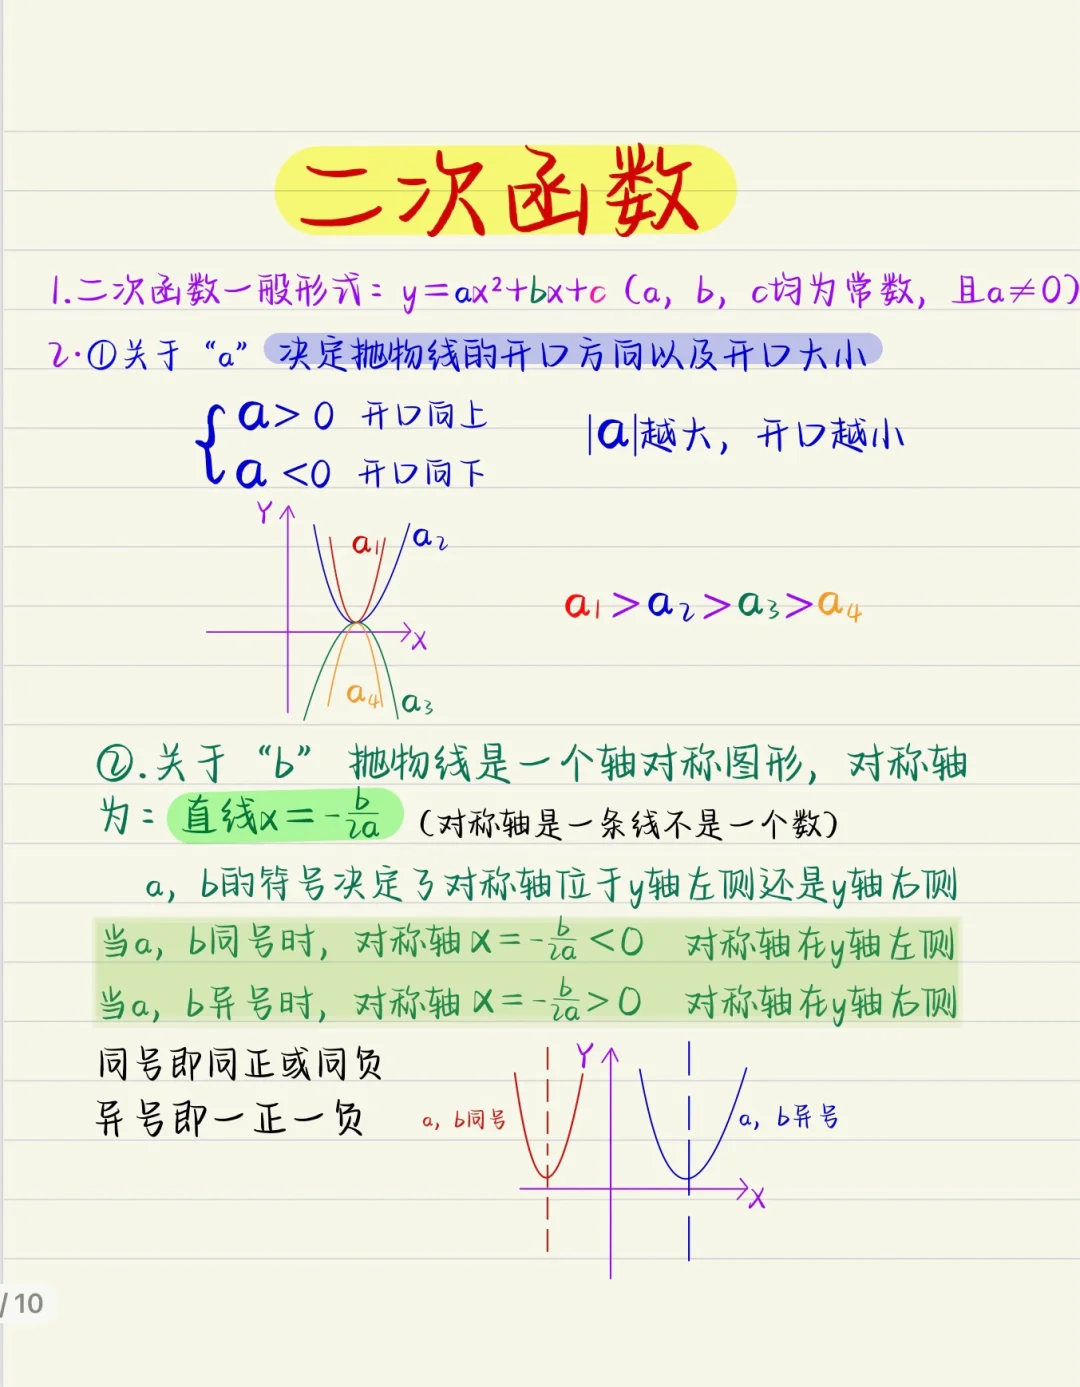 二次函数
1.二次函数一般形式：y=ax²+bx+c（a，b，c均为常数，且a≠0）
2.①关于“a” 决定抛物线的开口方向以及开口大小
a>0 开口向上
a<0 开口向下
|a|越大，开口越小
Y
a₁ a₂
a₁>a₂>a₃>a₄
X
a₄ a₃
②.关于“b” 抛物线是一个轴对称图形，对称轴
为：直线x=-b/2a（对称轴是一条线不是一个数）
a，b的符号决定了对称轴位于y轴左侧还是y轴右侧
当a，b同号时，对称轴x=-b/2a<0 对称轴在y轴左侧
当a，b异号时，对称轴x=-b/2a>0 对称轴在y轴右侧
同号即同正或同负
异号即一正一负
Y
a，b同号
a，b异号
X
/ 10